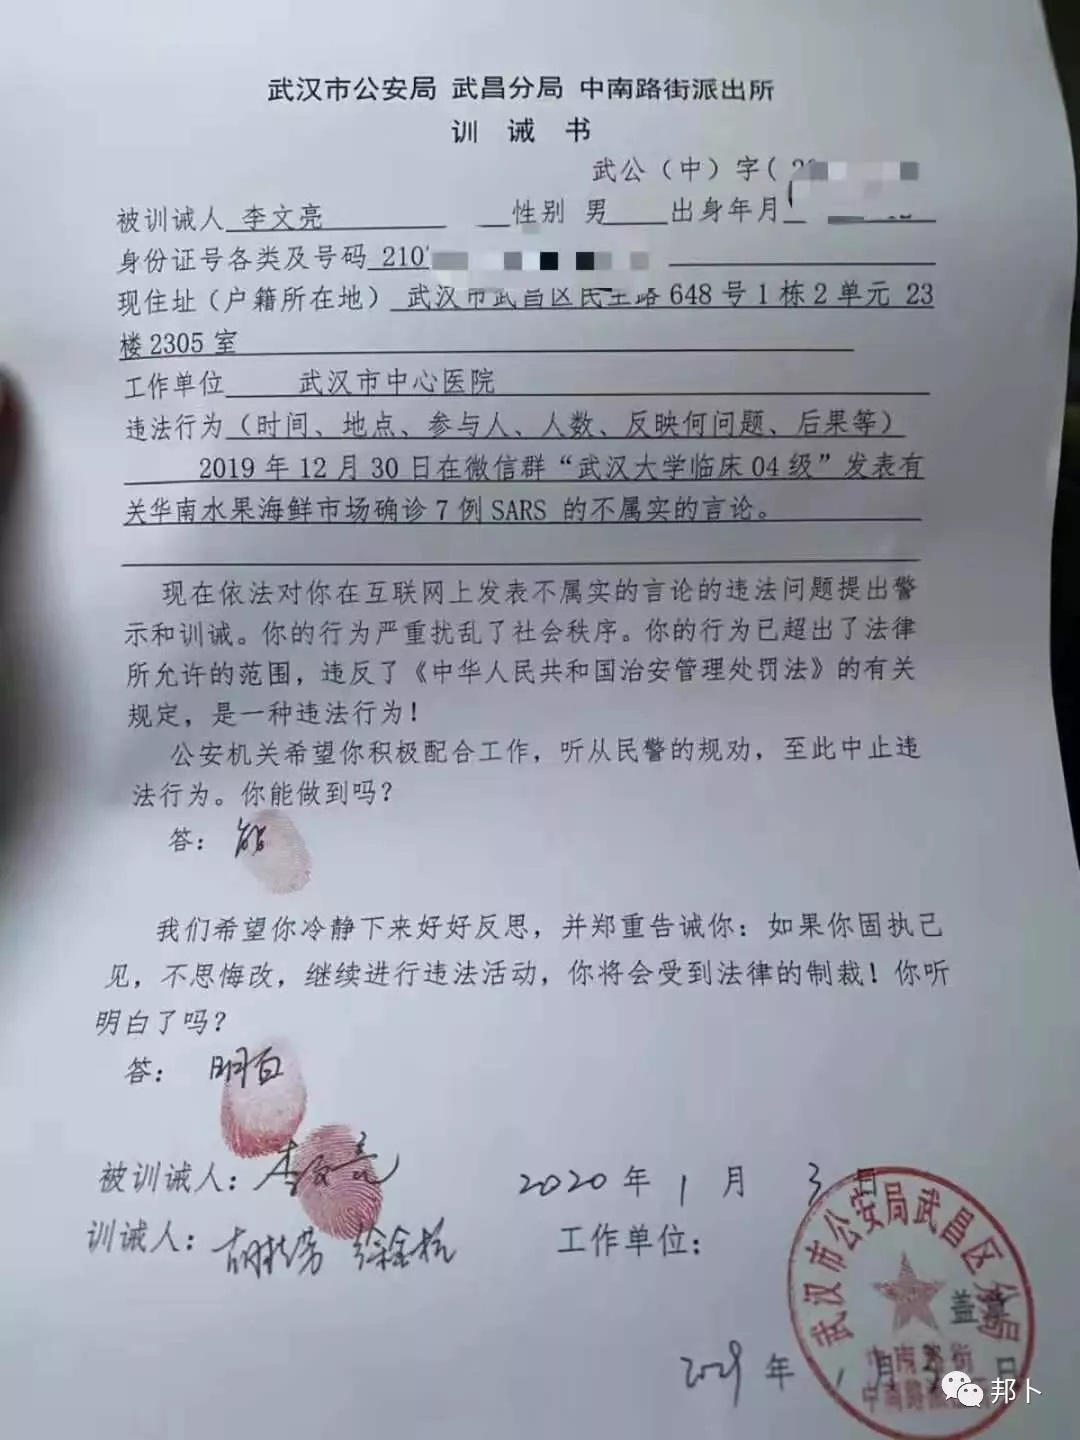 武汉市公安局 武昌分局 中南路街派出所
训 诫 书
武公（中）字（
被训诫人 李文亮 性别 男 出身年月
身份证号各类及号码 210
现住址（户籍所在地） 武汉市武昌区民主路 648 号 1 栋 2 单元 23
楼 2305 室
工作单位 武汉市中心医院
违法行为（时间、地点、参与人、人数、反映何问题、后果等）
2019 年 12 月 30 日在微信群“武汉大学临床 04 级”发表有
关华南水果海鲜市场确诊 7 例 SARS 的不属实的言论。
现在依法对你在互联网上发表不属实的言论的违法问题提出警
示和训诫。你的行为严重扰乱了社会秩序。你的行为已超出了法律
所允许的范围，违反了《中华人民共和国治安管理处罚法》的有关
规定，是一种违法行为！
公安机关希望你积极配合工作，听从民警的规劝，至此中止违
法行为。你能做到吗？
答： 能
我们希望你冷静下来好好反思，并郑重告诫你：如果你固执己
见，不思悔改，继续进行违法活动，你将会受到法律的制裁！你听
明白了吗？
答： 明白
被训诫人：李文亮 2020 年 1 月 3 日
训诫人： 工作单位：
武汉市公安局武昌区分局
盖章
中南路街
年 1 月 3 日
邦卜